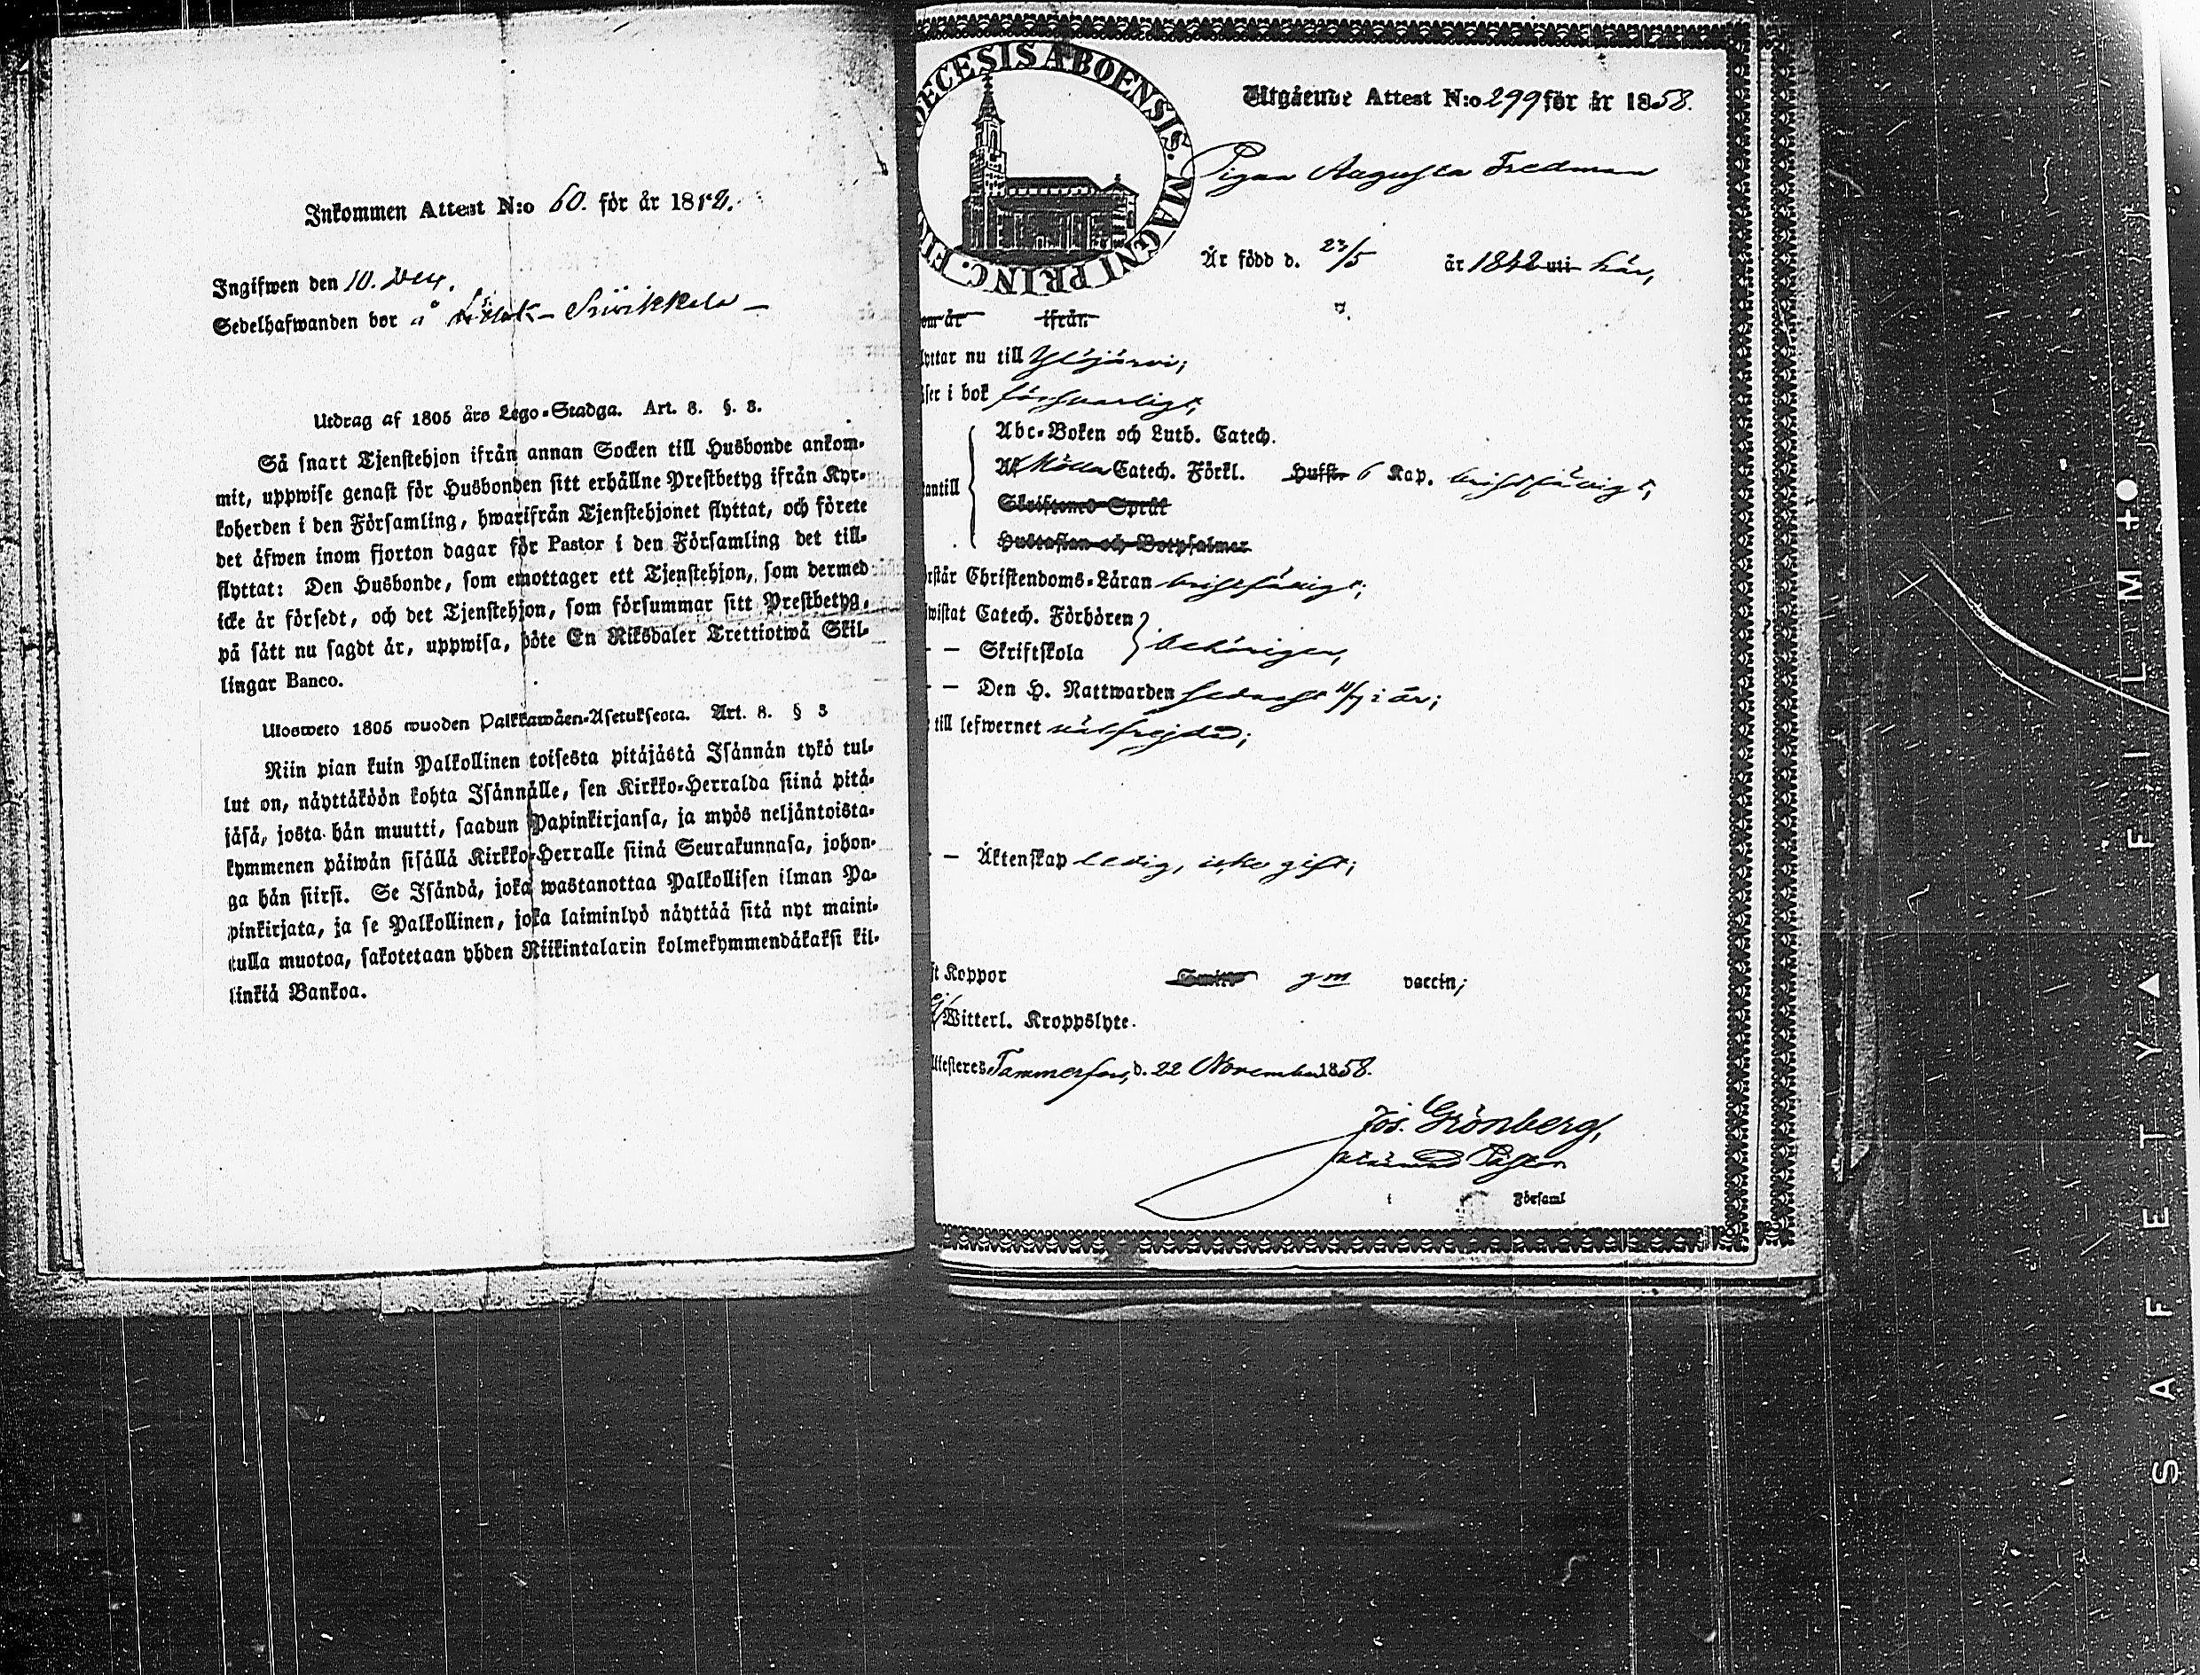 Inkommen Attest N:o 60. för år 18
Ingifwen den 10. Dec.
Sedelhafwanden bor å Siwikkala
Utdrag af 1805 års Lego-Stadga. Art. 8. §. 3.
Så snart Tjenstehjon ifrån annan Socken till Husbonde ankom-
mit, uppwise genast för Husbonden sitt erhållne Prestbetyg ifrån Kyr-
koherden i den Församling, hwarifrån Tjenstehjonet flyttat, och förete
det äfwen inom fjorton dagar för Pastor i den Församling det till-
flyttat: Den Husbonde, som emottager ett Tjenstehjon, som dermed
icke är försedt, och det Tjenstehjon, som försummar sitt Prestbetyg,
på sätt nu sagdt är, uppwisa, böte En Riksdaler Trettiotwå Skil-
lingar Banco.
Ulosweto 1805 wuoden Palkkawäen-Asetuksesta. Art. 8. § 3
Niin pian kuin Palkollinen toisesta pitäjästä Isännän tykö tul-
lut on, näyttäköön kohta Isännälle, sen Kirkko-Herralda siinä pitä-
jäsä, josta hän muutti, saadun Papinkirjansa, ja myös neljäntoista-
kymmenen päiwän sisällä Kirkko-Herralle siinä Seurakunnasa, johon-
ga hän siirsi. Se Isändä, joka wastanottaa Palkollisen ilman Pa-
pinkirjata, ja se Palkollinen, joka laiminlyö näyttää sitä nyt maini-
tulla muotoa, sakotetaan yhden Riikintalarin kolmekymmendäkaksi kil-
linkiä Bankoa.
ECESIS ABOENSIS. MAGNI PRINC. FIN
Utgående Attest N:o 299 för år 1858.
Pigan Augusta Fredman
Är född d. 23/5 år 1842 uti här,
om år ifrån
lyttar nu till Ylöjärwi;
äser i bok försvarligt,
Abc-Boken och Luth. Catech.
Af Möller Catech. Förkl. Hufst. 6 Kap. bristfälligt,
antill
Skriftenes Språk
Hustaflan och Botpsalmer
rstår Christendoms-Läran bristfälligt;
wistat Catech. Förhören
- - Skriftskola behörigen,
- - Den H. Nattwarden sednast 11/7 i år;
till lefwernet välfrejdad;
- - Äktenskap ledig, icke gift;
ft Koppor gm vaccin;
Witterl. Kroppslyte.
ttesteres Tammerfors, d. 22 November 1858.
Jos. Grönberg,
Pastor
i Församl
SAFETY ▲ FILM + ●